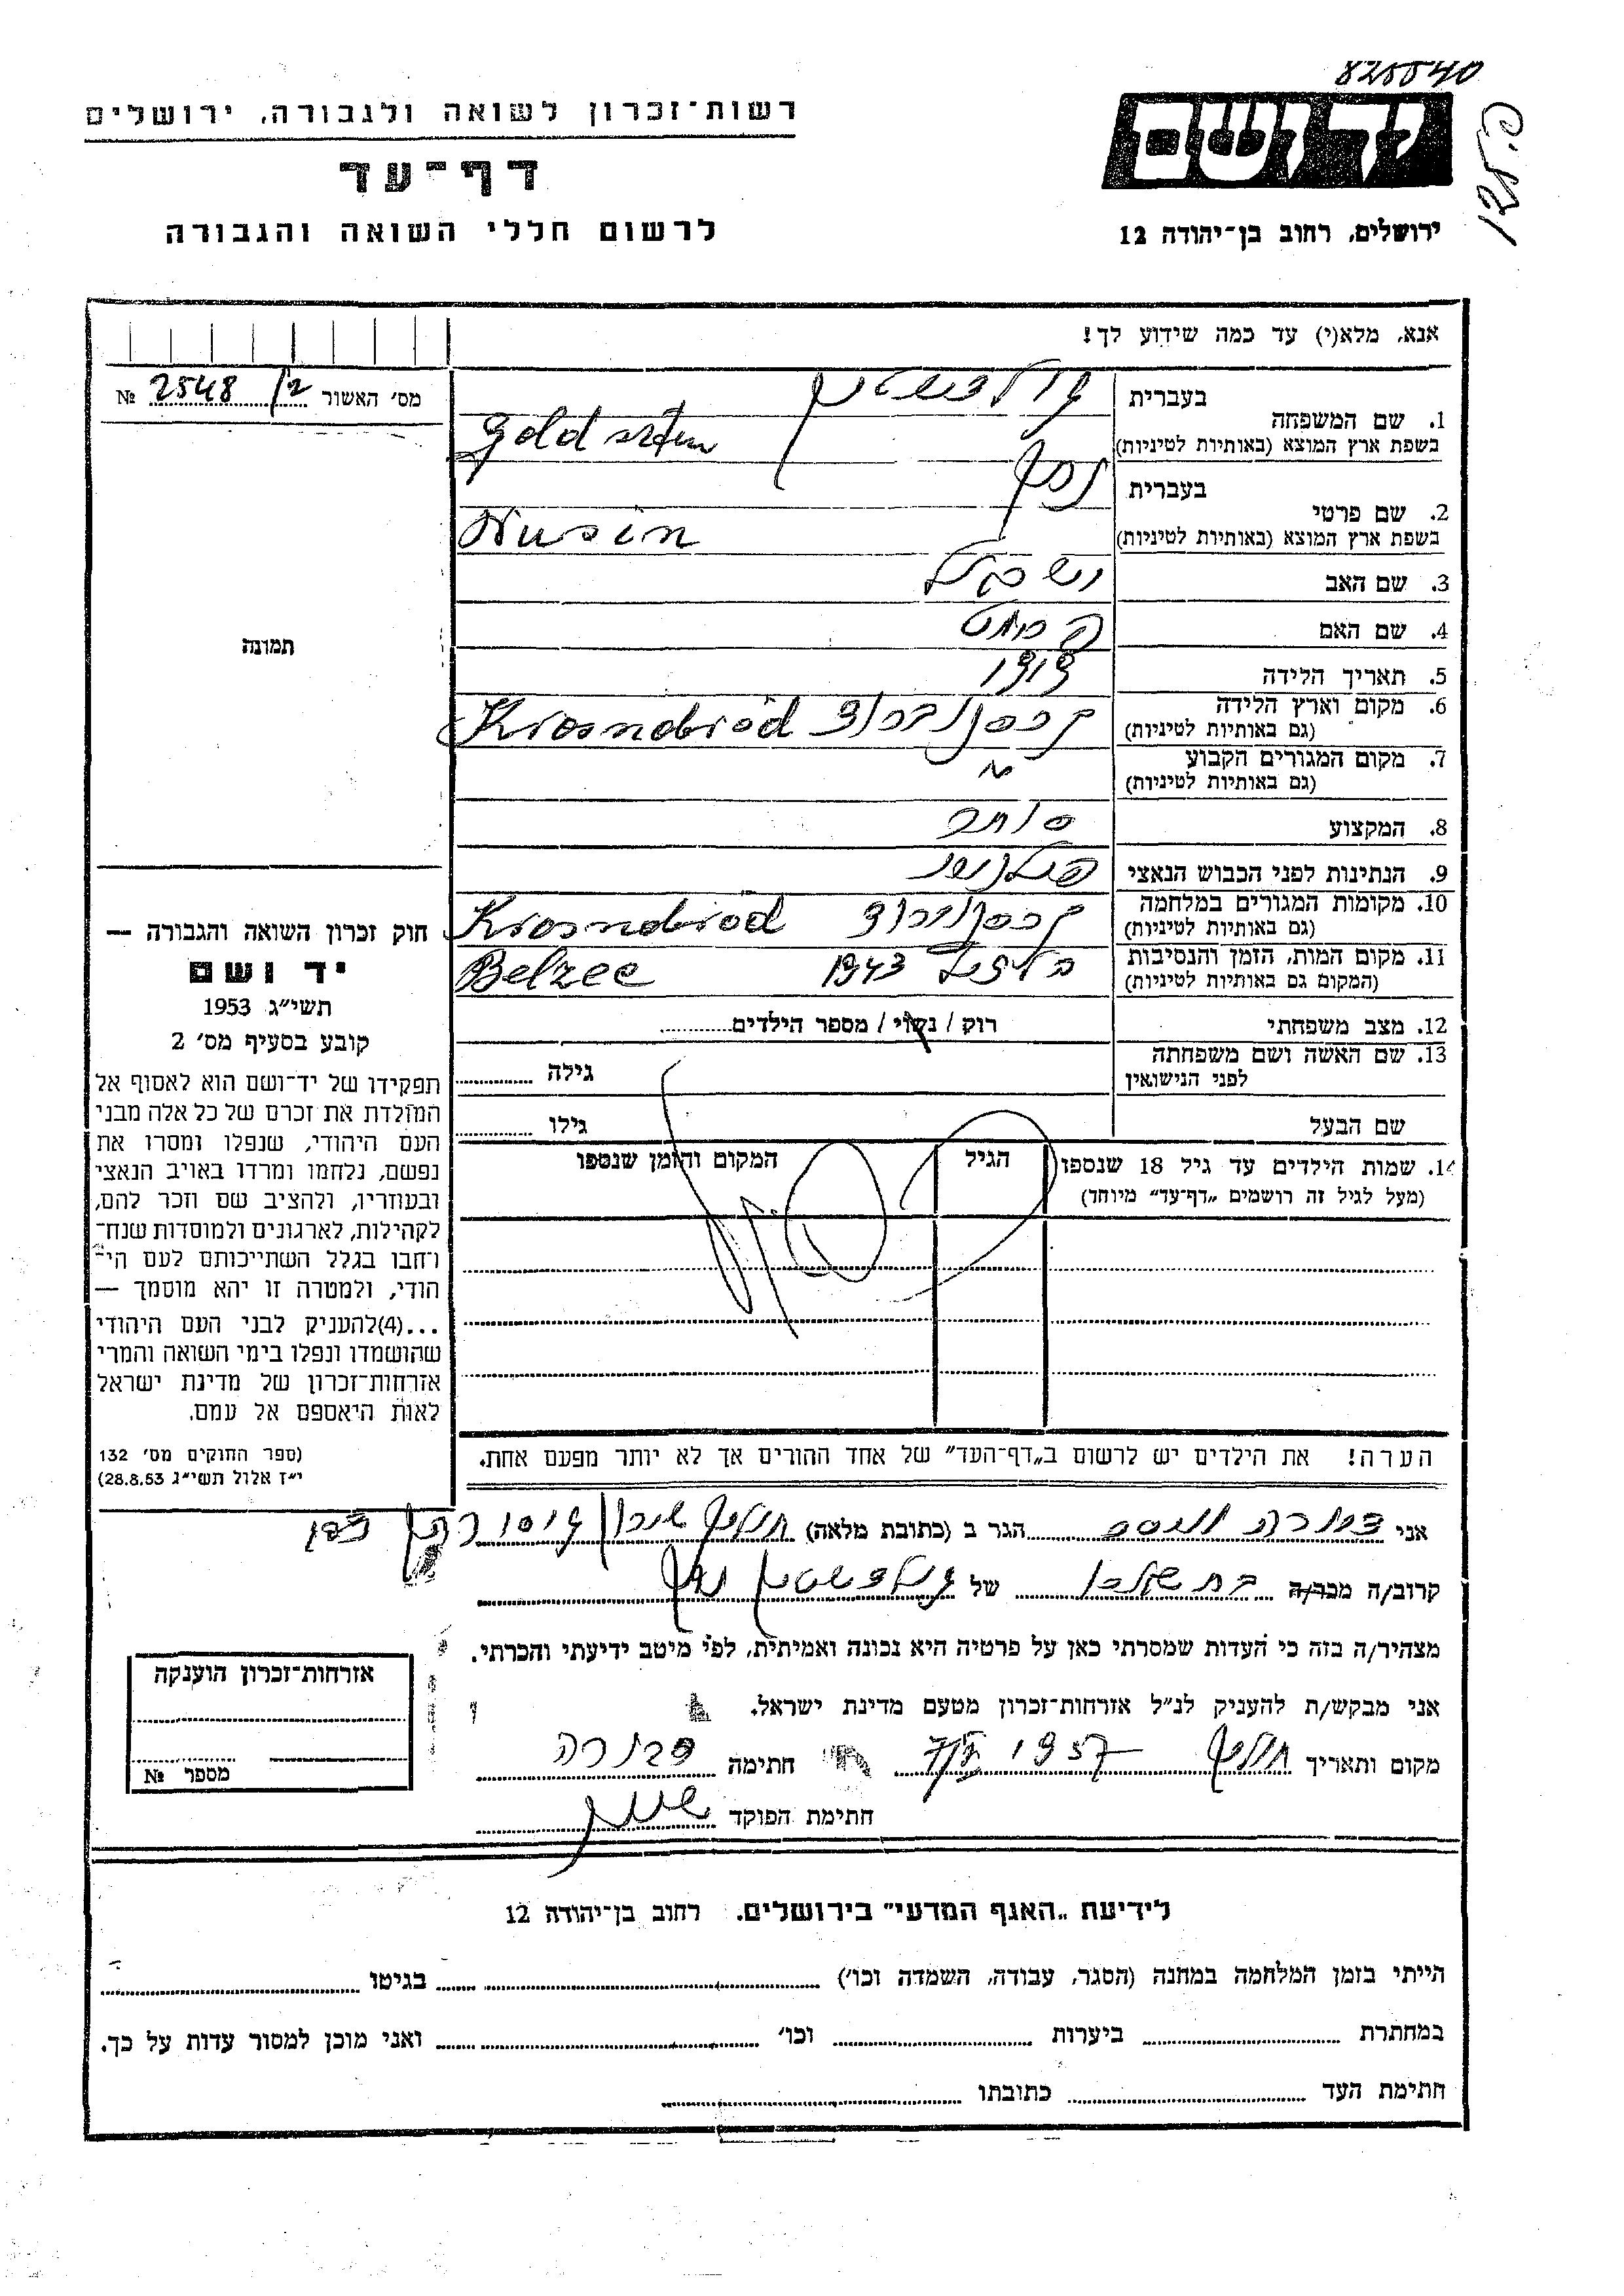 825540
רשות־זכרון לשואה ולגבורה, ירושלים
דף־עד
לרשום חללי השואה והגבורה
ידושם
ירושלים, רחוב בן־יהודה 12
אנא, מלא(י) עד כמה שידוע לך!
מס׳ האשור 2548/2 №
1. שם המשפחה
בעברית גולדשטיין
בשפת ארץ המוצא (באותיות לטיניות) Goldsztein
2. שם פרטי
בעברית נוסן
בשפת ארץ המוצא (באותיות לטיניות) Nusin
3. שם האב
4. שם האם
5. תאריך הלידה 1919
6. מקום וארץ הלידה
(גם באותיות לטיניות) Krosnobród
7. מקום המגורים הקבוע
(גם באותיות לטיניות)
8. המקצוע סוחר
9. הנתינות לפני הכבוש הנאצי
10. מקומות המגורים במלחמה
(גם באותיות לטיניות) Krosnobród
11. מקום המות, הזמן והנסיבות
(המקום גם באותיות לטיניות) 1943 Belzec
12. מצב משפחתי רוק / נשוי / מספר הילדים
13. שם האשה ושם משפחתה
לפני הנישואין
גילה
שם הבעל גילו
14. שמות הילדים עד גיל 18 שנספו
(מעל לגיל זה רושמים „דף־עד" מיוחד)
הגיל
המקום והזמן שנספו
הערה! את הילדים יש לרשום ב„דף־העד" של אחד ההורים אך לא יותר מפעם אחת.
תמונה
חוק זכרון השואה והגבורה —
יד ושם
תשי״ג 1953
קובע בסעיף מס׳ 2
תפקידו של יד־ושם הוא לאסוף אל
המולדת את זכרם של כל אלה מבני
העם היהודי, שנפלו ומסרו את
נפשם, נלחמו ומרדו באויב הנאצי
ובעוזריו, ולהציב שם וזכר להם,
לקהילות, לארגונים ולמוסדות שנח־
רחבו בגלל השתייכותם לעם הי־
הודי, ולמטרה זו יהא מוסמך —
...(4)להעניק לבני העם היהודי
שהושמדו ונפלו בימי השואה והמרי
אזרחות־זכרון של מדינת ישראל
לאות היאספם אל עמם.
(ספר החוקים מס׳ 132
י״ז אלול תשי״ג 28.8.53)
אני הגר ב (כתובת מלאה)
קרוב/ה מכר/ה של גולדשטיין נוסן
מצהיר/ה בזה כי העדות שמסרתי כאן על פרטיה היא נכונה ואמיתית, לפי מיטב ידיעתי והכרתי.
אני מבקש/ת להעניק לנ״ל אזרחות־זכרון מטעם מדינת ישראל.
מקום ותאריך 1957 חתימה
חתימת הפוקד
אזרחות־זכרון הוענקה
מספר №
לידיעת „האגף המדעי" בירושלים. רחוב בן־יהודה 12
הייתי בזמן המלחמה במחנה (הסגר, עבודה, השמדה וכו׳) בגיטו
במחתרת ביערות וכו׳ ואני מוכן למסור עדות על כך.
חתימת העד כתובתו